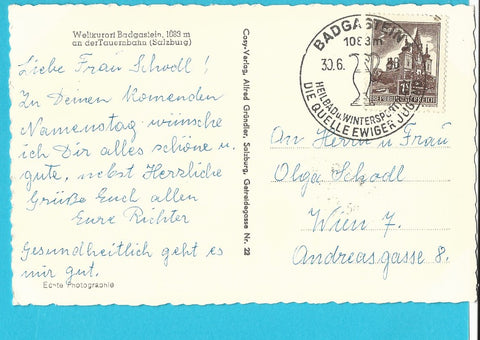 Weltkurort Badgastein, 1083 m
an der Tauernbahn (Salzburg)
Liebe Frau Schodl!
Zu Deinen Komenden
Namenstag wünsche
ich Dir alles schöne u.
gute, nebst Herzliche
Grüße Euch allen
Eure Richter
Gesundheitlich geht es
mir gut.
Echte Photographie
Cosy-Verlag, Alfred Gründler, Salzburg, Getreidegasse Nr. 22
BADGASTEIN
1083 m
30.6.
HEILBAD u. WINTERSPORT
DIE QUELLE EWIGER JUGEND
REPUBLIK ÖSTERREICH
An Herrn u. Frau
Olga Schodl
Wien 7.
Andreasgasse 8.